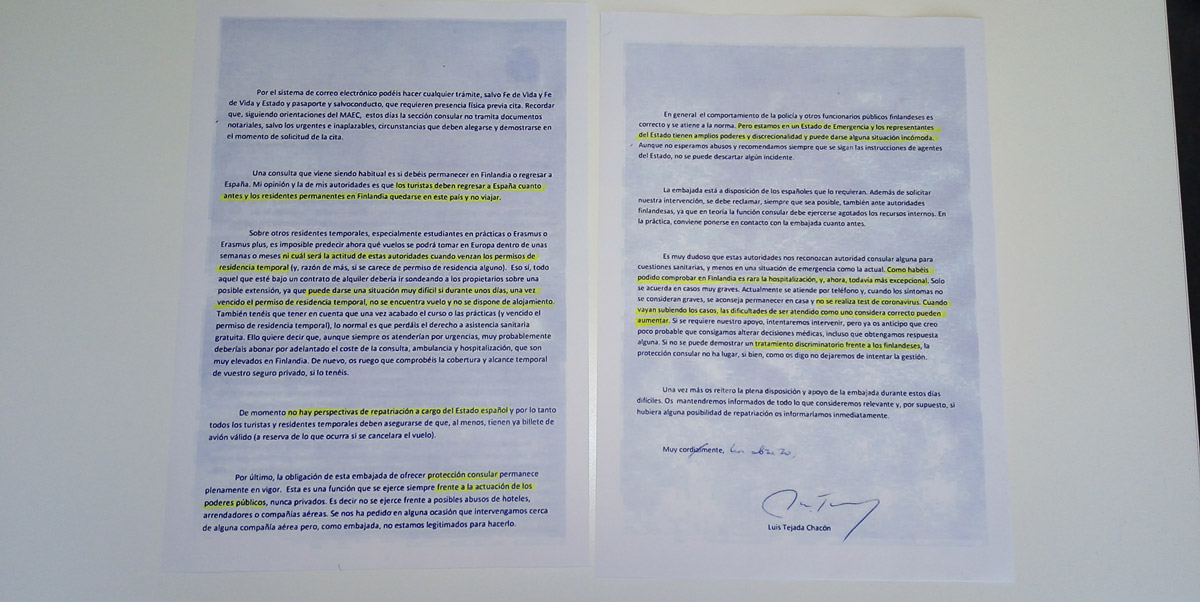 Por el sistema de correo electrónico podéis hacer cualquier trámite, salvo Fe de Vida y Fe
de Vida y Estado y pasaporte y salvoconducto, que requieren presencia física previa cita. Recordar
que, siguiendo orientaciones del MAEC, estos días la sección consular no tramita documentos
notariales, salvo los urgentes e inaplazables, circunstancias que deben alegarse y demostrarse en
el momento de solicitud de la cita.
Una consulta que viene siendo habitual es si debéis permanecer en Finlandia o regresar a
España. Mi opinión y la de mis autoridades es que los turistas deben regresar a España cuanto
antes y los residentes permanentes en Finlandia quedarse en este país y no viajar.
Sobre otros residentes temporales, especialmente estudiantes en prácticas o Erasmus o
Erasmus plus, es imposible predecir ahora qué vuelos se podrá tomar en Europa dentro de unas
semanas o meses ni cuál será la actitud de estas autoridades cuando venzan los permisos de
residencia temporal (y, razón de más, si se carece de permiso de residencia alguno). Eso sí, todo
aquel que esté bajo un contrato de alquiler debería ir sondeando a los propietarios sobre una
posible extensión, ya que puede darse una situación muy difícil si durante unos días, una vez
vencido el permiso de residencia temporal, no se encuentra vuelo y no se dispone de alojamiento.
También tenéis que tener en cuenta que una vez acabado el curso o las prácticas (y vencido el
permiso de residencia temporal), lo normal es que perdáis el derecho a asistencia sanitaria
gratuita. Ello quiere decir que, aunque siempre os atenderían por urgencias, muy probablemente
deberíais abonar por adelantado el coste de la consulta, ambulancia y hospitalización, que son
muy elevados en Finlandia. De nuevo, os ruego que comprobéis la cobertura y alcance temporal
de vuestro seguro privado, si lo tenéis.
De momento no hay perspectivas de repatriación a cargo del Estado español y por lo tanto
todos los turistas y residentes temporales deben asegurarse de que, al menos, tienen ya billete de
avión válido (a reserva de lo que ocurra si se cancelara el vuelo).
Por último, la obligación de esta embajada de ofrecer protección consular permanece
plenamente en vigor. Esta es una función que se ejerce siempre frente a la actuación de los
poderes públicos, nunca privados. Es decir no se ejerce frente a posibles abusos de hoteles,
arrendadores o compañías aéreas. Se nos ha pedido en alguna ocasión que intervengamos cerca
de alguna compañía aérea pero, como embajada, no estamos legitimados para hacerlo.
En general el comportamiento de la policía y otros funcionarios públicos finlandeses es
correcto y se atiene a la norma. Pero estamos en un Estado de Emergencia y los representantes
del Estado tienen amplios poderes y discrecionalidad y puede darse alguna situación incómoda.
Aunque no esperamos abusos y recomendamos siempre que se sigan las instrucciones de agentes
del Estado, no se puede descartar algún incidente.
La embajada está a disposición de los españoles que lo requieran. Además de solicitar
nuestra intervención, se debe reclamar, siempre que sea posible, también ante autoridades
finlandesas, ya que en teoría la función consular debe ejercerse agotados los recursos internos. En
la práctica, conviene ponerse en contacto con la embajada cuanto antes.
Es muy dudoso que estas autoridades nos reconozcan autoridad consular alguna para
cuestiones sanitarias, y menos en una situación de emergencia como la actual. Como habéis
podido comprobar en Finlandia es rara la hospitalización, y, ahora, todavía más excepcional. Solo
se acuerda en casos muy graves. Actualmente se atiende por teléfono y, cuando los síntomas no
se consideran graves, se aconseja permanecer en casa y no se realiza test de coronavirus. Cuando
vayan subiendo los casos, las dificultades de ser atendido como uno considera correcto pueden
aumentar. Si se requiere nuestro apoyo, intentaremos intervenir, pero ya os anticipo que creo
poco probable que consigamos alterar decisiones médicas, incluso que obtengamos respuesta
alguna. Si no se puede demostrar un tratamiento discriminatorio frente a los finlandeses, la
protección consular no ha lugar, si bien, como os digo no dejaremos de intentar la gestión.
Una vez más os reitero la plena disposición y apoyo de la embajada durante estos días
difíciles. Os mantendremos informados de todo lo que consideremos relevante y, por supuesto, si
hubiera alguna posibilidad de repatriación os informaríamos inmediatamente.
Muy cordialmente, un abrazo,
Luis Tejada Chacón